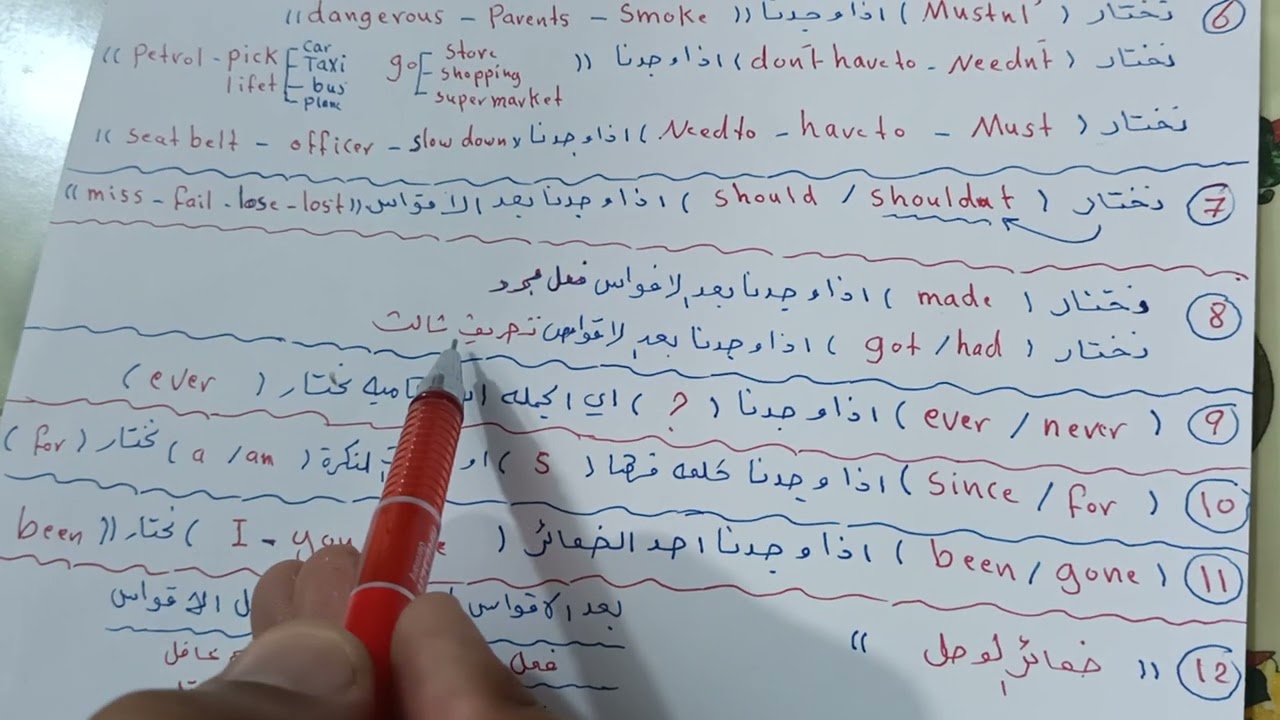 ⑥ نختار ( Mustn't ) اذا وجدنا (( dangerous - Parents - Smoke ))
نختار ( don't have to - Needn't ) اذا وجدنا (( go [ store shopping supermarket petrol - pick lifet [ car Taxi bus plane ))
نختار ( Need to - have to - Must ) اذا وجدنا (( seat belt - officer - slow down ))
⑦ نختار ( should / shouldnt ) اذا وجدنا بعد الاقواس (( miss - fail - lose - lost ))
⑧ نختار ( made ) اذا وجدنا بعد الاقواس فعل مجرد
نختار ( got / had ) اذا وجدنا بعد الاقواس تصريف ثالث
⑨ ( ever / never ) اذا وجدنا ( ? ) اي الجمله نختار ( ever )
⑩ ( Since / for ) اذا وجدنا كلمه فيها ( S ) او النكرة ( a / an ) نختار ( for )
⑪ ( been / gone ) اذا وجدنا احد الضمائر ( I - you ) نختار (( been
⑫ (( ضمائر لوصل ))
بعد الاقواس الاقواس
فعل عاقل